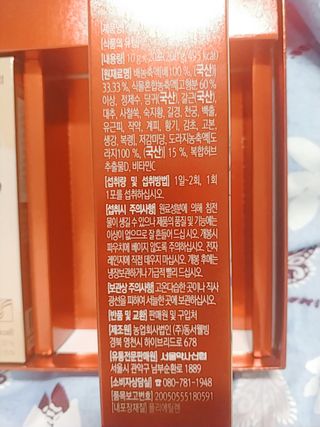 [제품명]
[식품의 유형]
[내용량] 10 g×20포(200 g)
[원재료명] 배농축액(배100 %, 국산)
33.33 %, 식물혼합농축액(고형분 60 %
이상, 정제수, 당귀(국산), 갈근(국산),
대추, 사철쑥, 숙지황, 길경, 천궁, 백출,
유근피, 작약, 계피, 황기, 감초, 고본,
생강, 복령), 저감미당, 도라지농축액(도
라지100 %, (국산)) 15 %, 복합허브
추출물D, 비타민C
[섭취량 및 섭취방법] 1일~2회, 1회
1포를 섭취하십시오.
[섭취시 주의사항] 원료성분에 의해 침전
물이 생길 수 있으나 제품의 품질 및 기능에는
이상이 없으므로 잘 흔들어 드십시오. 개봉시
파우치에 베이지 않도록 주의하십시오. 전자
레인지에 직접 데우지 마십시오. 개봉 후에는
냉장보관하거나 가급적 빨리 드십시오.
[보관상 주의사항] 고온다습한 곳이나 직사
광선을 피하여 서늘한 곳에 보관하십시오.
[반품 및 교환] 판매원 및 구입처
[제조원] 농업회사법인 ㈜동서웰빙
경북 영천시 하이브리드로 678
[유통전문판매원] 서울약사신협
서울시 관악구 남부순환로 1889
[소비자상담실] ☎ 080-781-1948
[품목보고번호] 20050555180591
[내포장재질] 폴리에틸렌